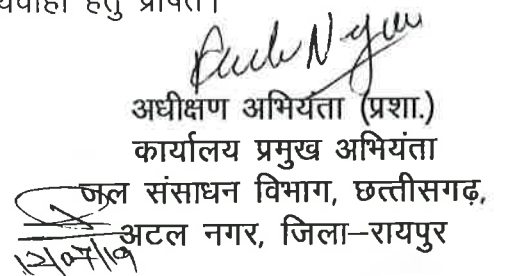 यवाही हेतु प्रेषित।
अधीक्षण अभियंता (प्रशा.)
कार्यालय प्रमुख अभियंता
जल संसाधन विभाग, छत्तीसगढ़,
अटल नगर, जिला–रायपुर
12/07/19